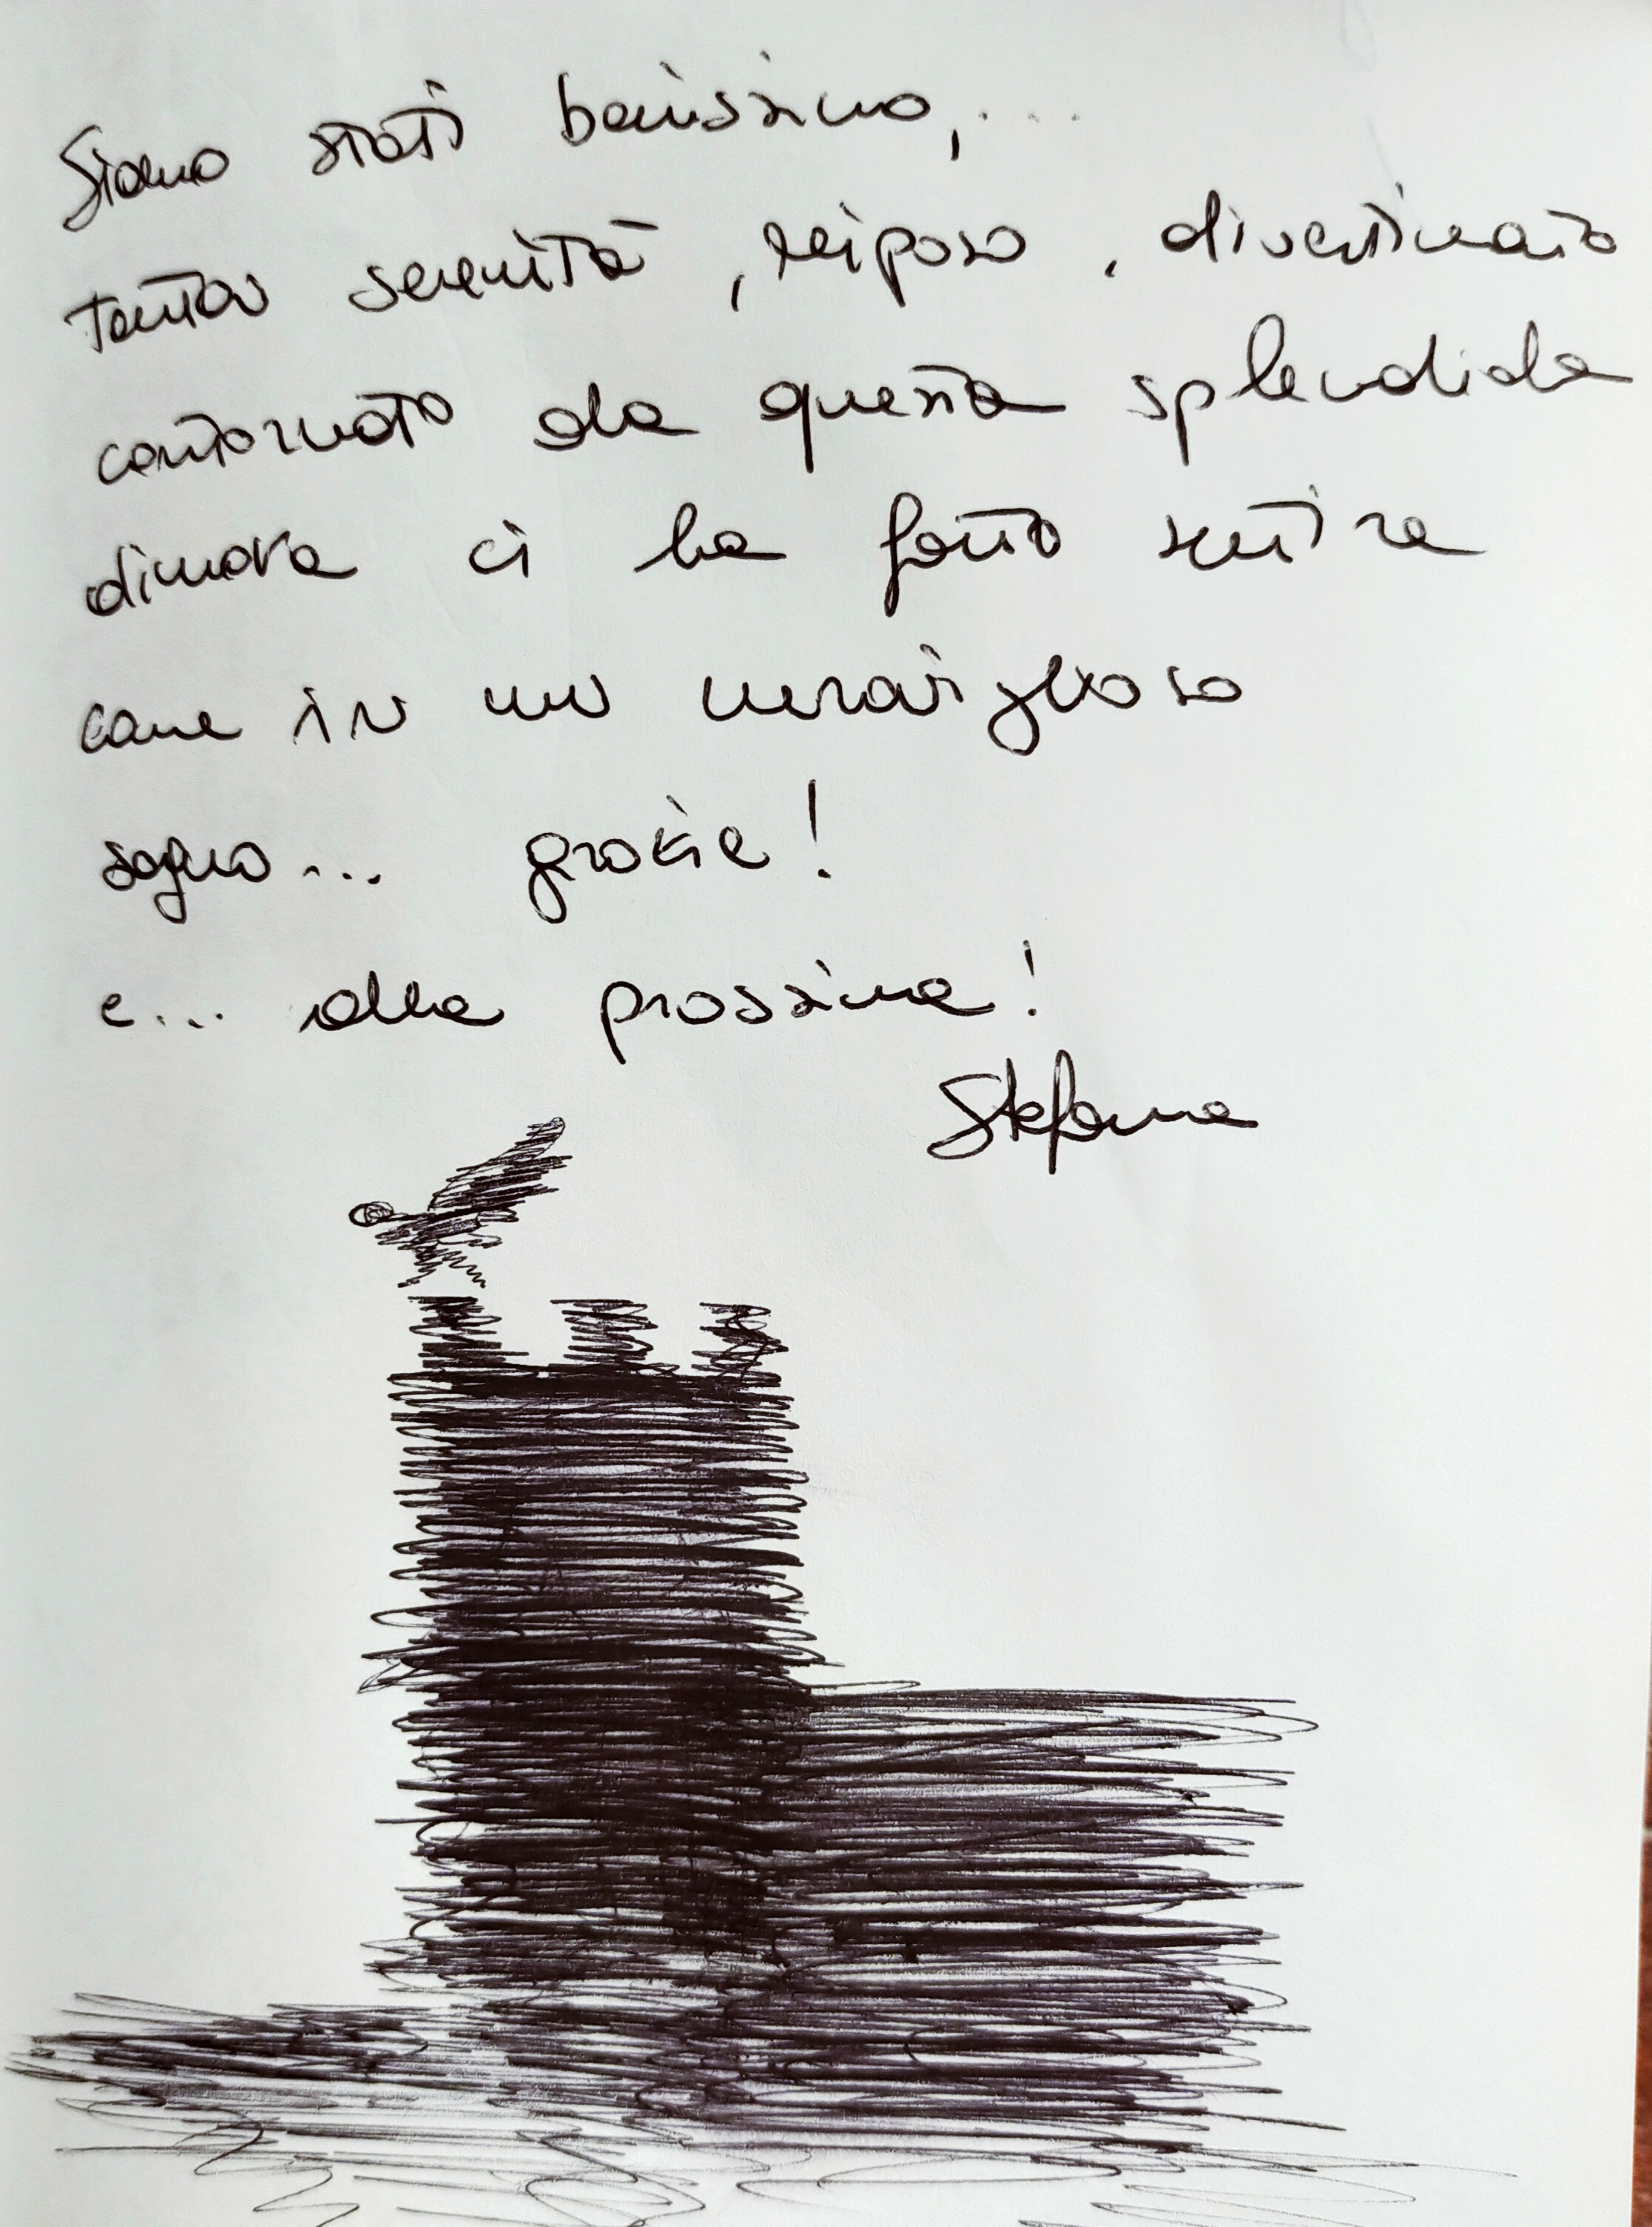 Siamo stati benissimo,....
tanta serenità, riposo, divertimento
contornato da questa splendida
dimora ci ha fatto sentire
come in un meraviglioso
sogno... grazie!
e... alla prossima!
Stefania